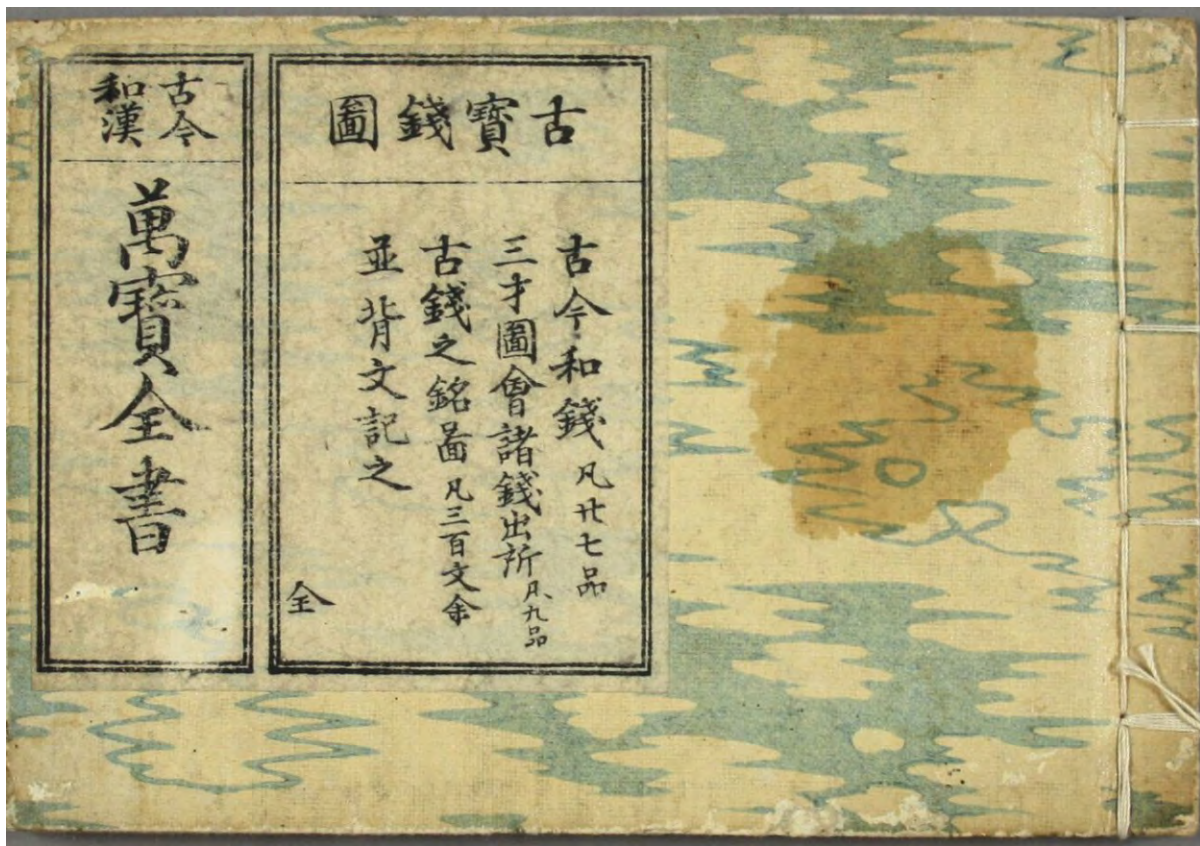 古寳錢圖
古今和錢凡廿七品
三才圖會諸錢出所凡九品
古錢之銘啚凡三百文余
並背文記之
全
古今
和漢
萬寳全書